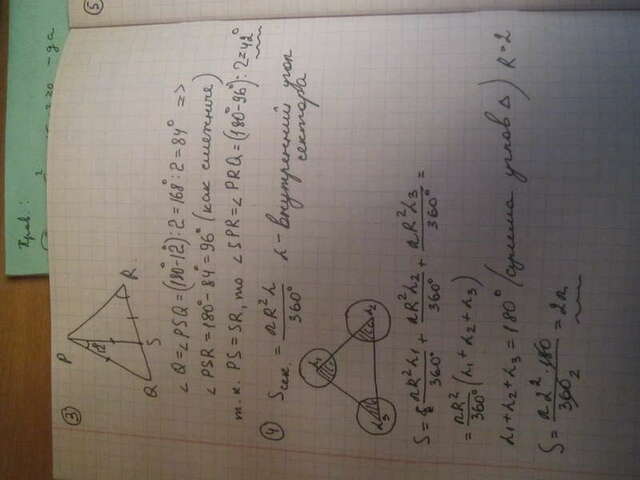 Прав.:
2 ≥ 0 - да
③
P
12°
R
Q
S
5
∠Q = ∠PSQ = (180° - 12°) : 2 = 168° : 2 = 84° =>
∠PSR = 180° - 84° = 96° (как смежные)
т.к. PS = SR, то ∠SPR = ∠PRQ = (180° - 96°) : 2 = 42°
④ Sсек. = πR²α / 360° α - внутренний угол
сектора
α₁
α₃ α₂
S = πR²α₁ / 360° + πR²α₂ / 360° + πR²α₃ / 360° =
= πR² / 360° (α₁ + α₂ + α₃)
α₁ + α₂ + α₃ = 180° (сумма углов Δ) R = 2
S = π2² · 180 / 360₂ = 2π